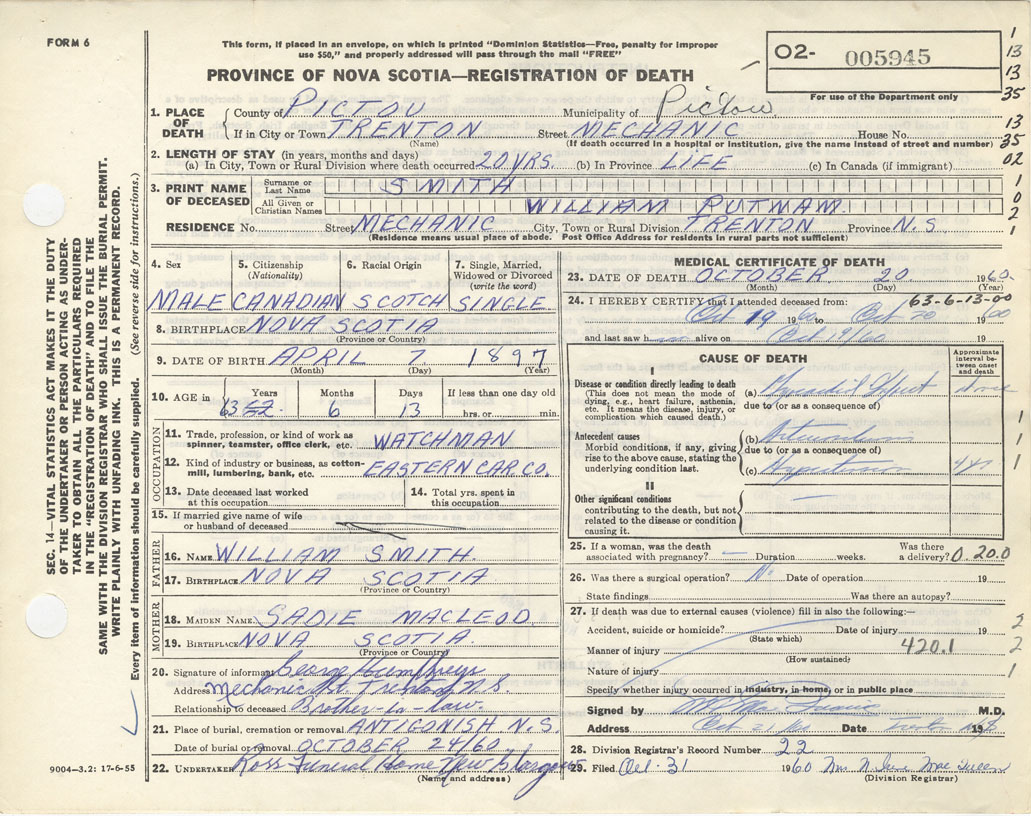 FORM 6
This form, if placed in an envelope, on which is printed "Dominion Statistics—Free, penalty for improper
use $50," and properly addressed will pass through the mail "FREE"
PROVINCE OF NOVA SCOTIA—REGISTRATION OF DEATH
O2- 005945
For use of the Department only
1
13
13
35
13
35
02
1
0
2
1
SEC. 14—VITAL STATISTICS ACT MAKES IT THE DUTY
OF THE UNDERTAKER OR PERSON ACTING AS UNDER-
TAKER TO OBTAIN ALL THE PARTICULARS REQUIRED
IN THE "REGISTRATION OF DEATH" AND TO FILE THE
SAME WITH THE DIVISION REGISTRAR WHO SHALL ISSUE THE BURIAL PERMIT.
WRITE PLAINLY WITH UNFADING INK. THIS IS A PERMANENT RECORD.
Every item of information should be carefully supplied. (See reverse side for instructions.)
1. PLACE OF DEATH
County of PICTOU Municipality of Pictou
If in City or Town TRENTON Street MECHANIC House No.
(Name) (If death occurred in a hospital or Institution, give the name instead of street and number)
2. LENGTH OF STAY (in years, months and days)
(a) In City, Town or Rural Division where death occurred 20 YRS. (b) In Province LIFE (c) In Canada (if immigrant)
3. PRINT NAME OF DECEASED
Surname or Last Name SMITH
All Given or Christian Names WILLIAM PUTNAM
RESIDENCE No. Street MECHANIC City, Town or Rural Division TRENTON Province N.S.
(Residence means usual place of abode. Post Office Address for residents in rural parts not sufficient)
4. Sex 5. Citizenship (Nationality) 6. Racial Origin 7. Single, Married, Widowed or Divorced (write the word)
MALE CANADIAN SCOTCH SINGLE
8. BIRTHPLACE NOVA SCOTIA
(Province or Country)
9. DATE OF BIRTH APRIL 7 1897
(Month) (Day) (Year)
10. AGE in Years Months Days If less than one day old
63 6 13 hrs. or min.
OCCUPATION
11. Trade, profession, or kind of work as spinner, teamster, office clerk, etc. WATCHMAN
12. Kind of industry or business, as cotton-mill, lumbering, bank, etc. EASTERN CAR CO.
13. Date deceased last worked at this occupation
14. Total yrs. spent in this occupation
15. If married give name of wife or husband of deceased
FATHER
16. NAME WILLIAM SMITH.
17. BIRTHPLACE NOVA SCOTIA
(Province or Country)
MOTHER
18. MAIDEN NAME SADIE MACLEOD
19. BIRTHPLACE NOVA SCOTIA.
(Province or Country)
20. Signature of informant George Humphreys
Address Mechanic St. Trenton N.S.
Relationship to deceased Brother-in-law.
21. Place of burial, cremation or removal ANTIGONISH N.S.
Date of burial or removal OCTOBER 24/60
22. UNDERTAKER Ross Funeral Home New Glasgow
(Name and address)
9004-3.2: 17-6-55
MEDICAL CERTIFICATE OF DEATH
23. DATE OF DEATH OCTOBER 20 1960
(Month) (Day) (Year)
24. I HEREBY CERTIFY that I attended deceased from: 63-6-13-00
Oct 19 1960 to Oct 20 1960
and last saw h alive on Oct 19 60
CAUSE OF DEATH
Approximate interval between onset and death
I
Disease or condition directly leading to death
(This does not mean the mode of dying, e.g., heart failure, asthenia, etc. It means the disease, injury, or complication which caused death.)
(a)
due to (or as a consequence of)
Antecedent causes
Morbid conditions, if any, giving rise to the above cause, stating the underlying condition last.
(b)
due to (or as a consequence of)
(c) Hypertension
1
1
1
II
Other significant conditions
contributing to the death, but not related to the disease or condition causing it.
25. If a woman, was the death associated with pregnancy? — Duration weeks. Was there a delivery? 0.20.0
26. Was there a surgical operation? No Date of operation 19
State findings Was there an autopsy?
27. If death was due to external causes (violence) fill in also the following:—
Accident, suicide or homicide? Date of injury 19 2
(State which)
Manner of injury 420.1 2
(How sustained)
Nature of injury 1
Specify whether injury occurred in industry, in home, or in public place
Signed by M.D.
Address Date 19
28. Division Registrar's Record Number 22
29. Filed Oct. 31 1960 Mrs N. June MacQueen
(Division Registrar)